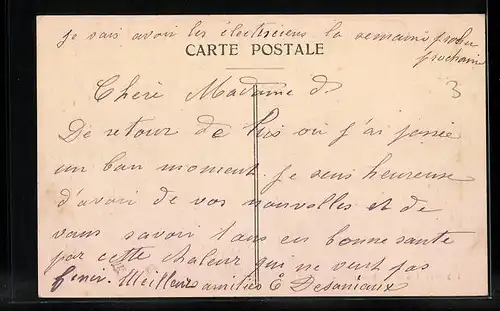 je vais avoir les électriciens la semaine
prochaine
CARTE POSTALE
3
Chère Madame
De retour de où j'ai passé
un bon moment. Je suis heureuse
d'avoir de vos nouvelles et de
vous savoir tous en bonne santé
par cette chaleur qui ne veut pas
finir. Meilleurs amitiés